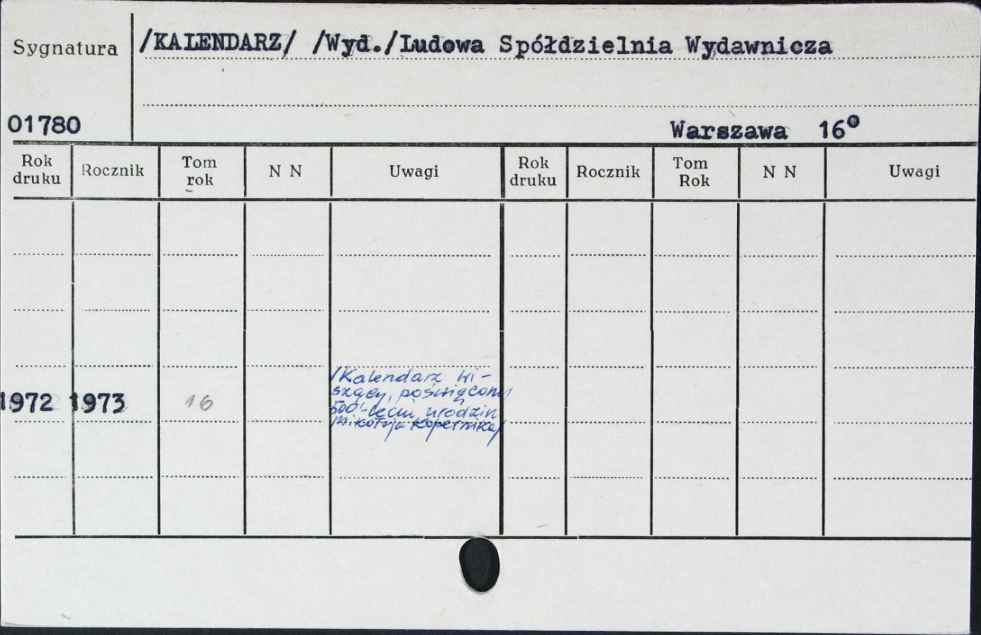 Sygnatura /KALENDARZ/ /Wyd./Ludowa Spółdzielnia Wydawnicza
01780 Warszawa 16°
Rok druku Rocznik Tom rok N N Uwagi Rok druku Rocznik Tom Rok N N Uwagi
/Kalendarz wi-
szący, poświęcony
1972 1973 16 500-leciu urodzin
Mikołaja Kopernika/